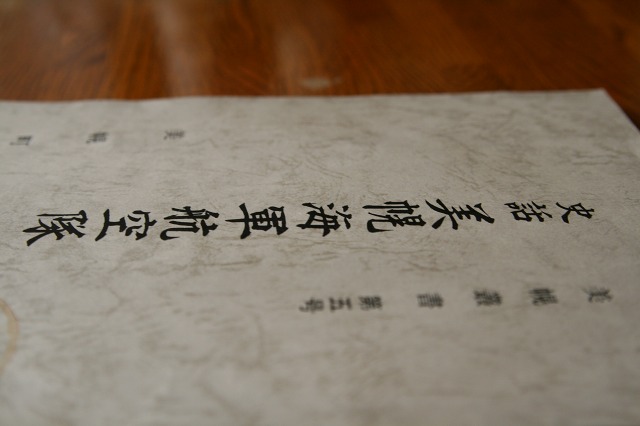 美幌叢書第五号
史話美幌海軍航空隊
美幌町